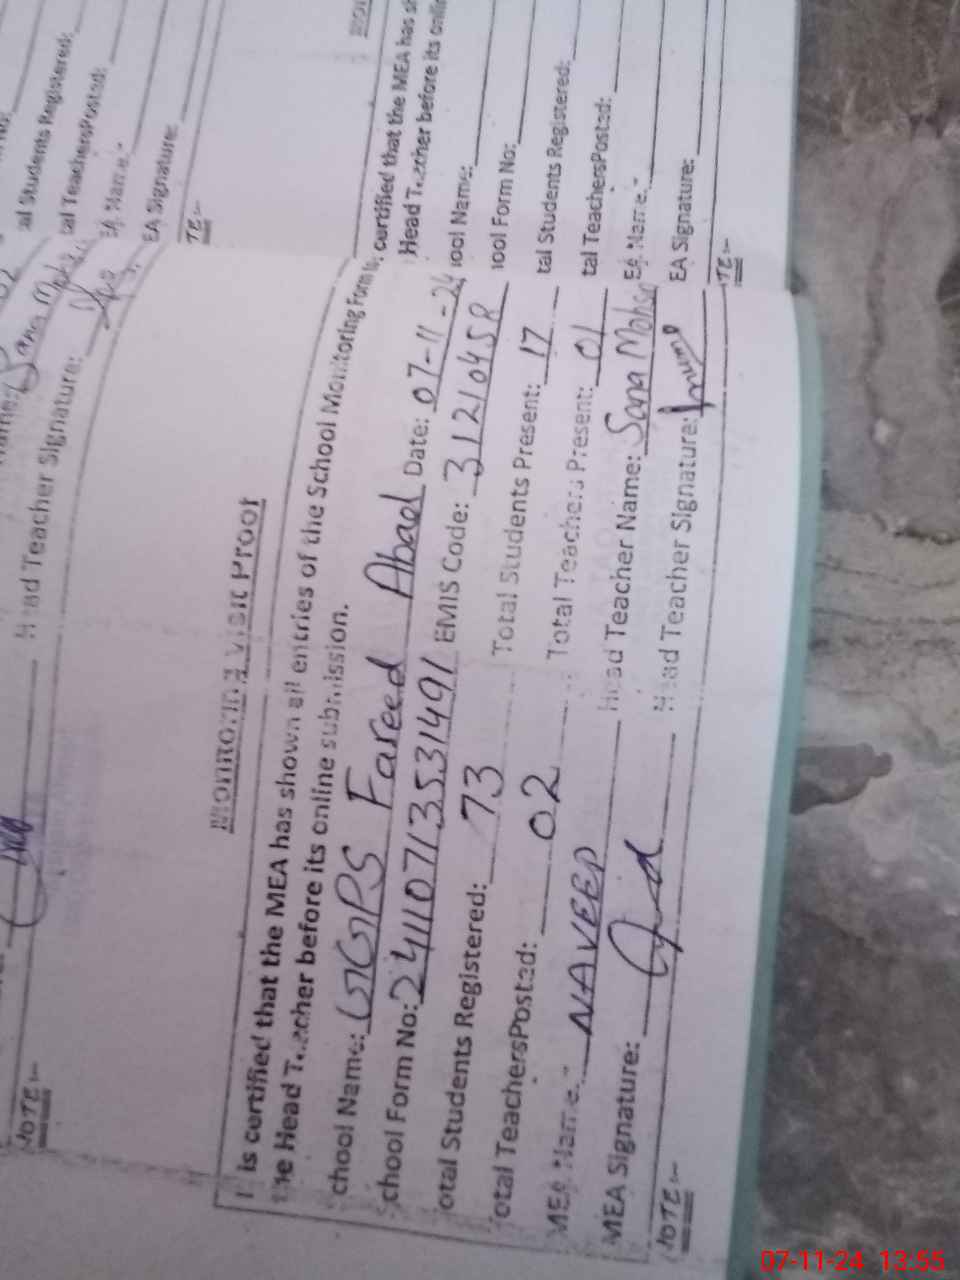 al Students Registered:
tal TeachersPosted:
EA Name:-
EA Signature:
TE:-
Head Teacher Signature:
NOTE:-
Monitoring Visit Proof
It is certified that the MEA has shown all entries of the School Monitoring Form to
the Head Teacher before its online submission.
chool Name: GGPS Fareed Abad Date: 07-11-24
School Form No: 24110713531491 EMIS Code: 31210458
otal Students Registered: 73 Total Students Present: 17
otal TeachersPosted: 02 Total Teachers Present: 01
MEA Name:- NAVEED Head Teacher Name: Sana Mohsin
MEA Signature: Head Teacher Signature:
NOTE:-
certified that the MEA has sh
Head Teacher before its onlin
ool Name:
ool Form No:
tal Students Registered:
tal TeachersPosted:
EA Name:-
EA Signature:
TE:-
07-11-24 13:55